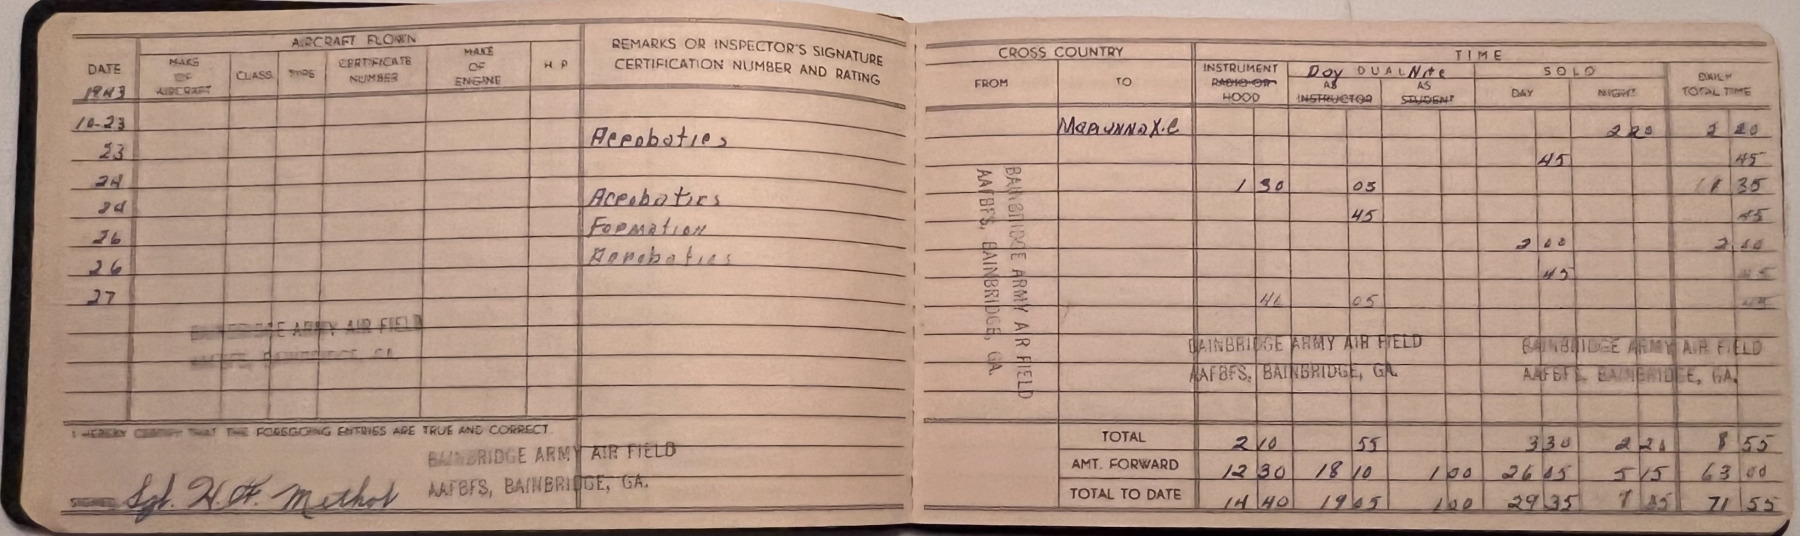 AIRCRAFT FLOWN
DATE
MAKE OF AIRCRAFT
CLASS
TYPE
CERTIFICATE NUMBER
MAKE OF ENGINE
H P
REMARKS OR INSPECTOR'S SIGNATURE
CERTIFICATION NUMBER AND RATING
1943
10-23
23 Acrobatics
24
24 Acrobatics
26 Formation
26 Acrobatics
27
BAINBRIDGE ARMY AIR FIELD
AAFBFS, BAINBRIDGE, GA.
I HEREBY CERTIFY THAT THE FOREGOING ENTRIES ARE TRUE AND CORRECT
BAINBRIDGE ARMY AIR FIELD
AAFBFS, BAINBRIDGE, GA.
SIGNED Sgt. H. F. Methot
CROSS COUNTRY
FROM
TO
TIME
INSTRUMENT RADIO OR HOOD
Day DUAL Nite
AS INSTRUCTOR
AS STUDENT
SOLO
DAY
NIGHT
DAILY TOTAL TIME
Marianna X.C 2 20 2 20
45 45
1 30 05 1 35
45 45
2 00 2 00
45 45
40 05 45
BAINBRIDGE ARMY AIR FIELD
AAFBFS, BAINBRIDGE, GA.
BAINBRIDGE ARMY AIR FIELD
AAFBFS, BAINBRIDGE, GA.
BAINBRIDGE ARMY AIR FIELD
AAFBFS, BAINBRIDGE, GA.
TOTAL 2 10 55 3 30 2 20 8 55
AMT. FORWARD 12 30 18 10 1 00 26 05 5 15 63 00
TOTAL TO DATE 14 40 19 05 1 00 29 35 7 35 71 55